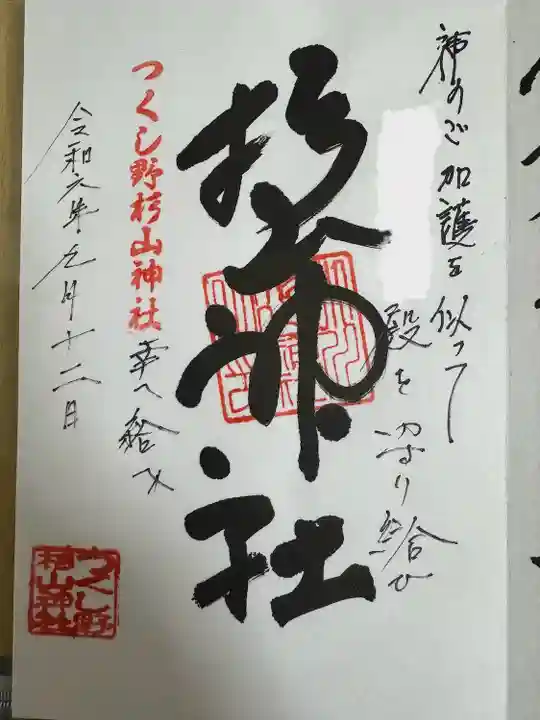 神のご加護を以って
殿を守り給ひ
杉山神社
つくし野杉山神社
幸へ給へ
令和六年九月十二日
つくし野
杉山神社